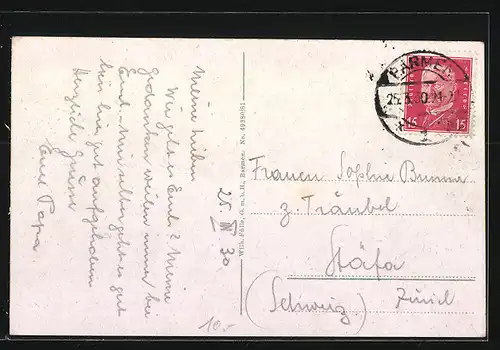 Meine Lieben
Wie geht es Euch? Meine
Gedanken weilen immer bei
Euch. Mir selber geht es gut
bin hier gut aufgehoben
Herzliche Grüsse
Euer Papa.
25. IV 30
Wilh. Fülle, G. m. b. H., Barmen. No. 49380/81
BARMEN
25. 30. 21-
15 15
Frauen Sophie Brunner
z. Träubel
Stäfa
(Schweiz) Zürich
10.-